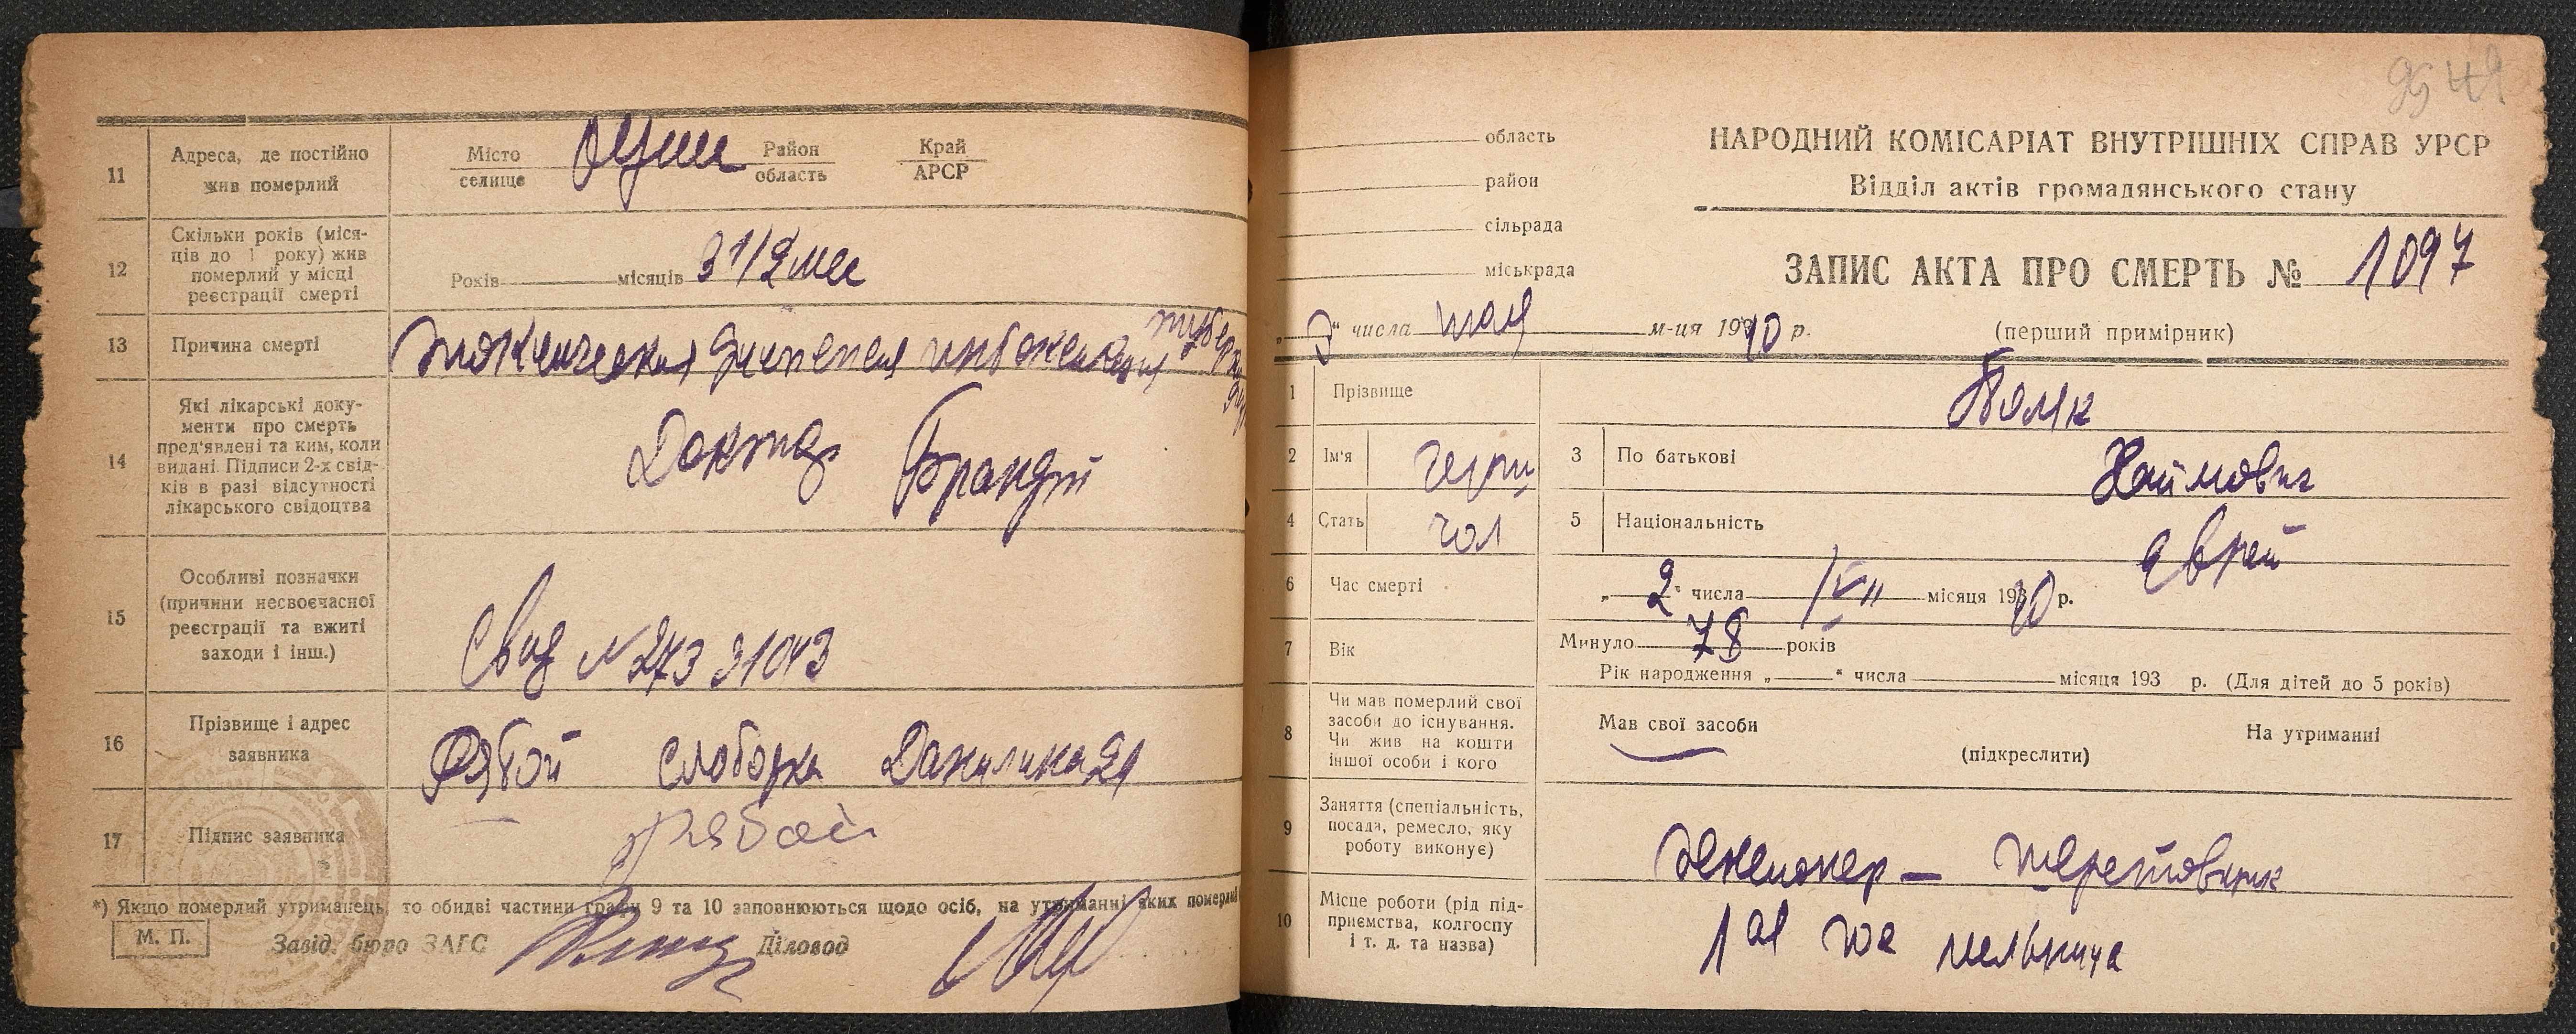 11 Адреса, де постійно жив померлий
Місто селище Район область Край АРСР
12 Скільки років (міся-
ців до 1 року) жив
померлий у місці
реєстрації смерті
Років місяців 3 1/2 мес
13 Причина смерті
14 Які лікарські доку-
менти про смерть
пред'явлені та ким, коли
видані. Підписи 2-х свід-
ків в разі відсутності
лікарського свідоцтва
Доктор Брандт
15 Особливі позначки
(причини несвоєчасної
реєстрації та вжиті
заходи і інш.)
Свид №273
16 Прізвище і адрес
заявника
Рябой Слободка 21
17 Підпис заявника
Рябой
*) Якщо померлий утриманець, то обидві частини графи 9 та 10 заповнюються щодо осіб, на утриманні яких померлий
М. П. Завід. бюро ЗАГС Діловод
9549
область
район
сільрада
міськрада
НАРОДНИЙ КОМІСАРІАТ ВНУТРІШНІХ СПРАВ УРСР
Відділ актів громадянського стану
ЗАПИС АКТА ПРО СМЕРТЬ № 1097
„3“ числа мая м-ця 1940 р. (перший примірник)
1 Прізвище
2 Ім'я
3 По батькові Хаймович
4 Стать чол
5 Національність Еврей
6 Час смерті „2" числа місяця 1940 р.
7 Вік
Минуло 78 років
Рік народження „ “ числа місяця 193 р. (Для дітей до 5 років)
8 Чи мав померлий свої
засоби до існування.
Чи жив на кошти
іншої особи і кого
Мав свої засоби (підкреслити) На утриманні
9 Заняття (спеціальність,
посада, ремесло, яку
роботу виконує)
10 Місце роботи (рід під-
приємства, колгоспу
і т. д. та назва)
1ая гос мельница